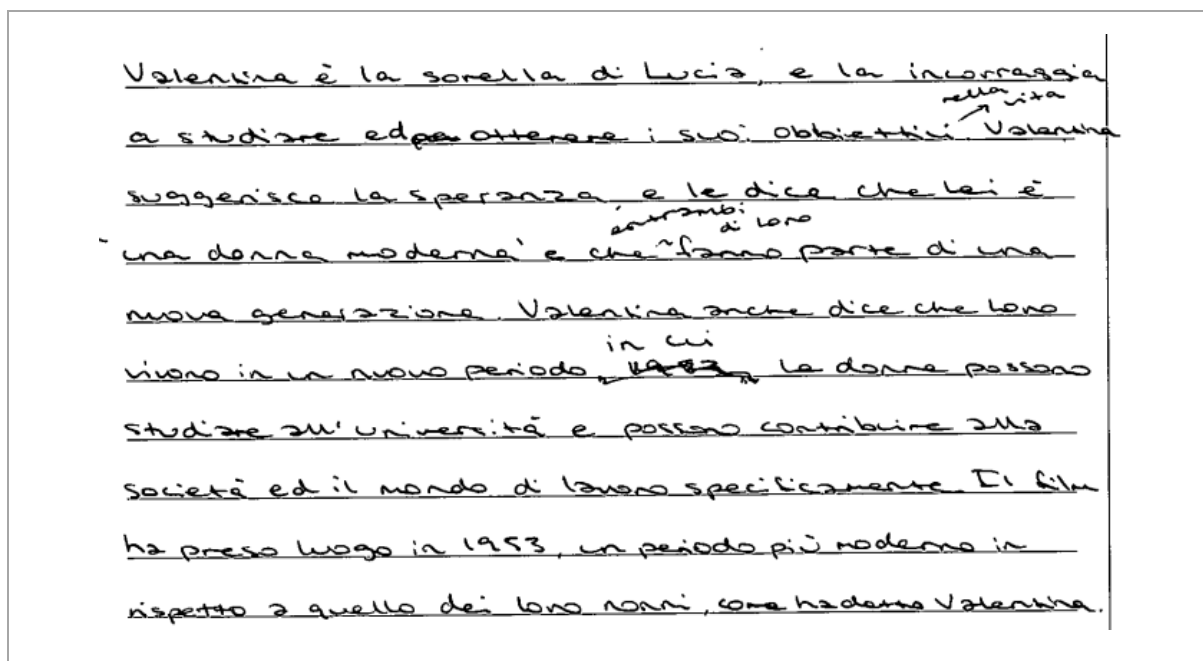 Valentina è la sorella di Lucia, e la incorraggia
nella vita
a studiare ed ottenere i suoi obbiettivi. Valentina
suggerisce la speranza, e le dice che lei è
entrambi di loro
'una donna moderna' e che fanno parte di una
nuova generazione. Valentina anche dice che loro
in cui
vivono in un nuovo periodo, le donne possono
studiare all'università e possono contribuire alla
società ed il mondo di lavoro specificamente. Il film
ha preso luogo in 1953, un periodo più moderno in
rispetto a quello dei loro nonni, come ha detto Valentina.